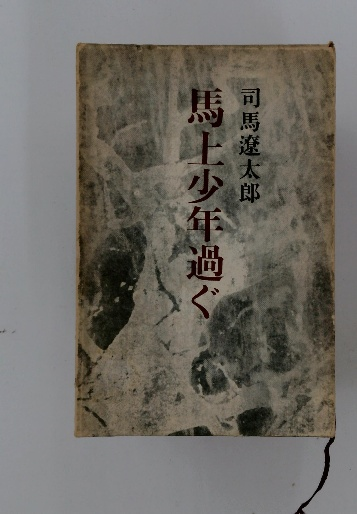 司馬遼太郎
馬上少年過ぐ